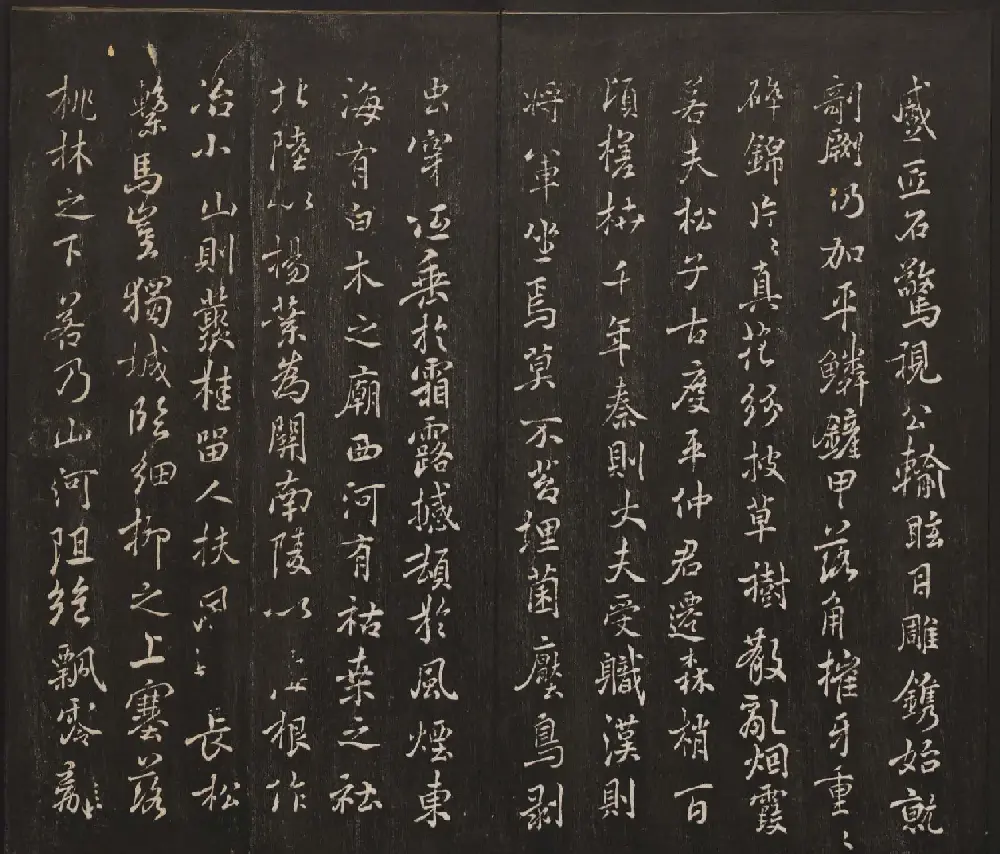 蹙匠石驚視公輸眩目雕鐫始就
剞劂仍加平鱗鏟甲落角摧牙重〻
碎錦片〻真花紛披草樹散亂烟霞
若夫松子古度平仲君遷森梢百
頃槎枿千年秦則大夫受職漢則
將軍坐焉莫不苔埋菌壓鳥剥
虫穿低垂於霜露撼頓於風煙東
海有白木之廟西河有枯桒之社
北陸以楊葉為關南陵以根作
冶小山則叢桂留人扶長松
繫馬豈獨城臨細柳之上塞落
桃林之下若乃山河阻絶飄零離